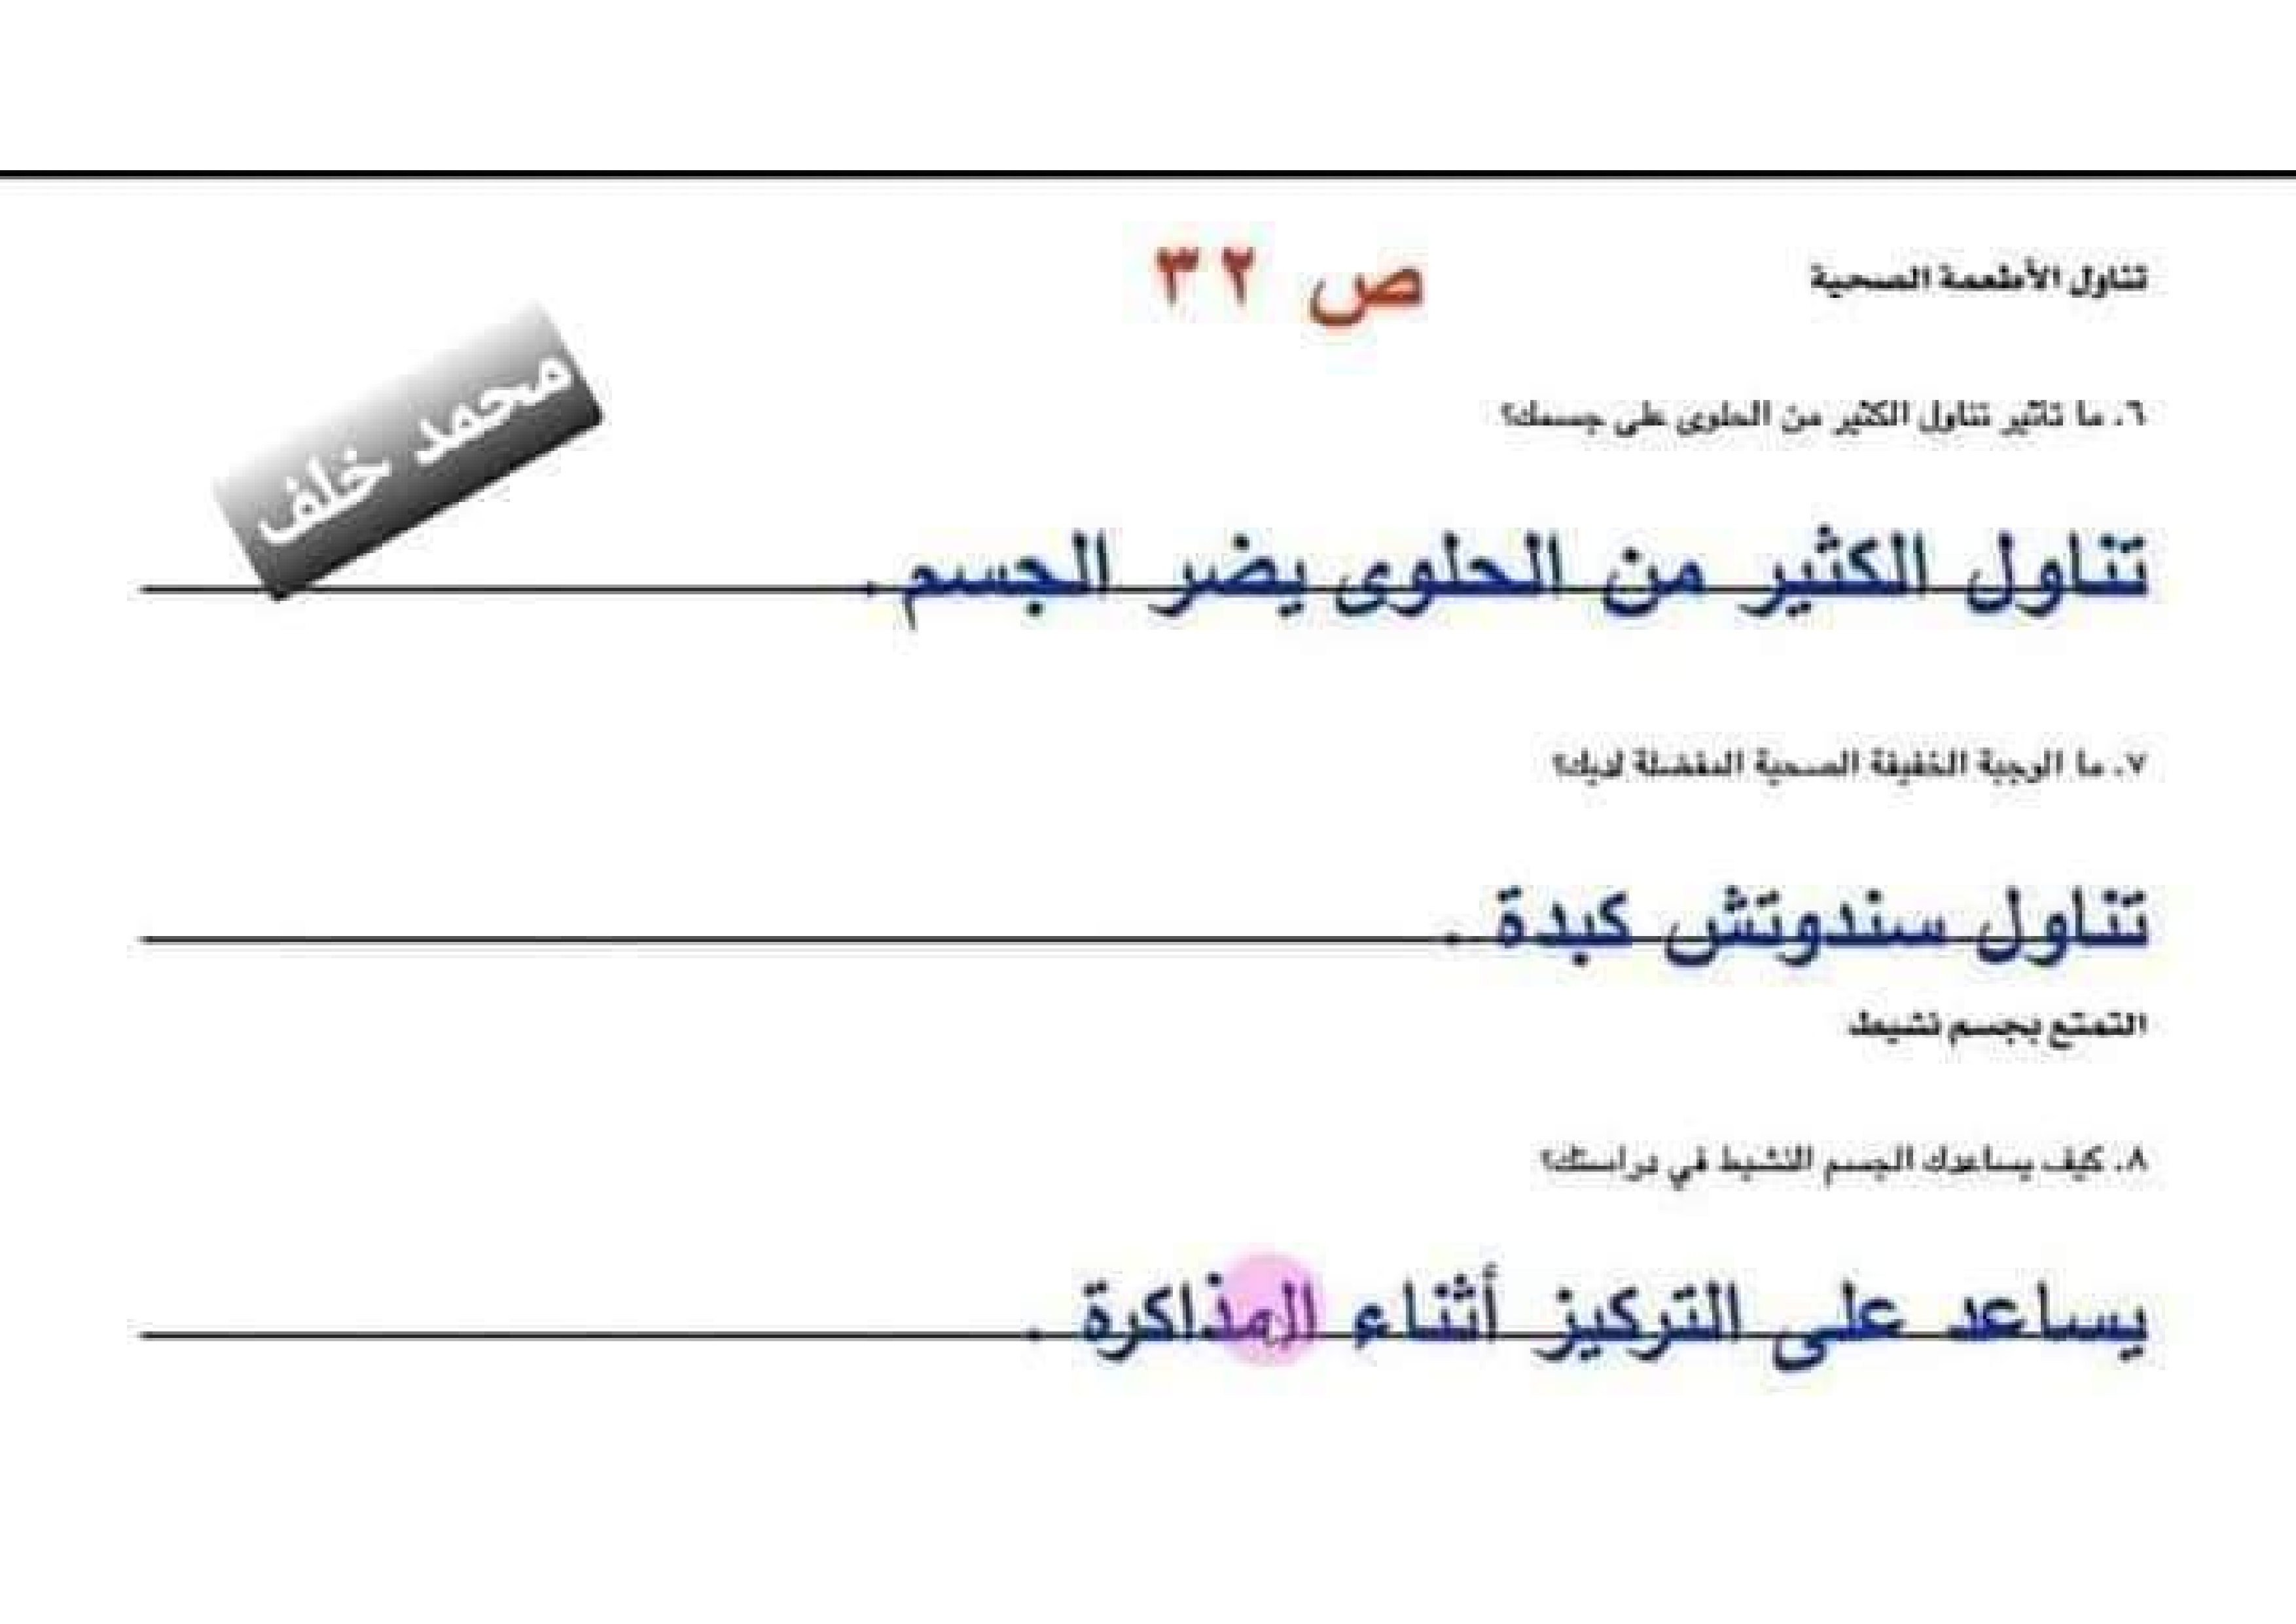 ص ٣٢
تناول الأطعمة الصحية
محمد خلف
٦. ما تأثير تناول الكثير من الحلوى على جسمك؟
تناول الكثير من الحلوى يضر الجسم .
٧. ما الوجبة الخفيفة الصحية المفضلة لديك؟
تناول سندوتش كبدة .
التمتع بجسم نشيط
٨. كيف يساعدك الجسم النشيط في دراستك؟
يساعد على التركيز أثناء المذاكرة .